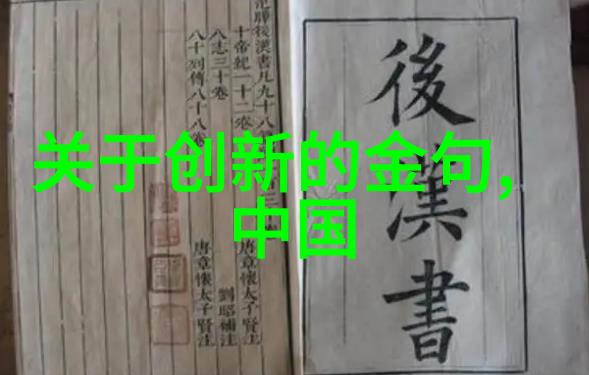 关于创新的金句,
中国
後漢書
曄後漢書凡九十八
十帝紀一十二卷 唐章懷太子賢注
八志三十卷 劉昭補注
八十列傳八十八卷 唐章懷太子賢注